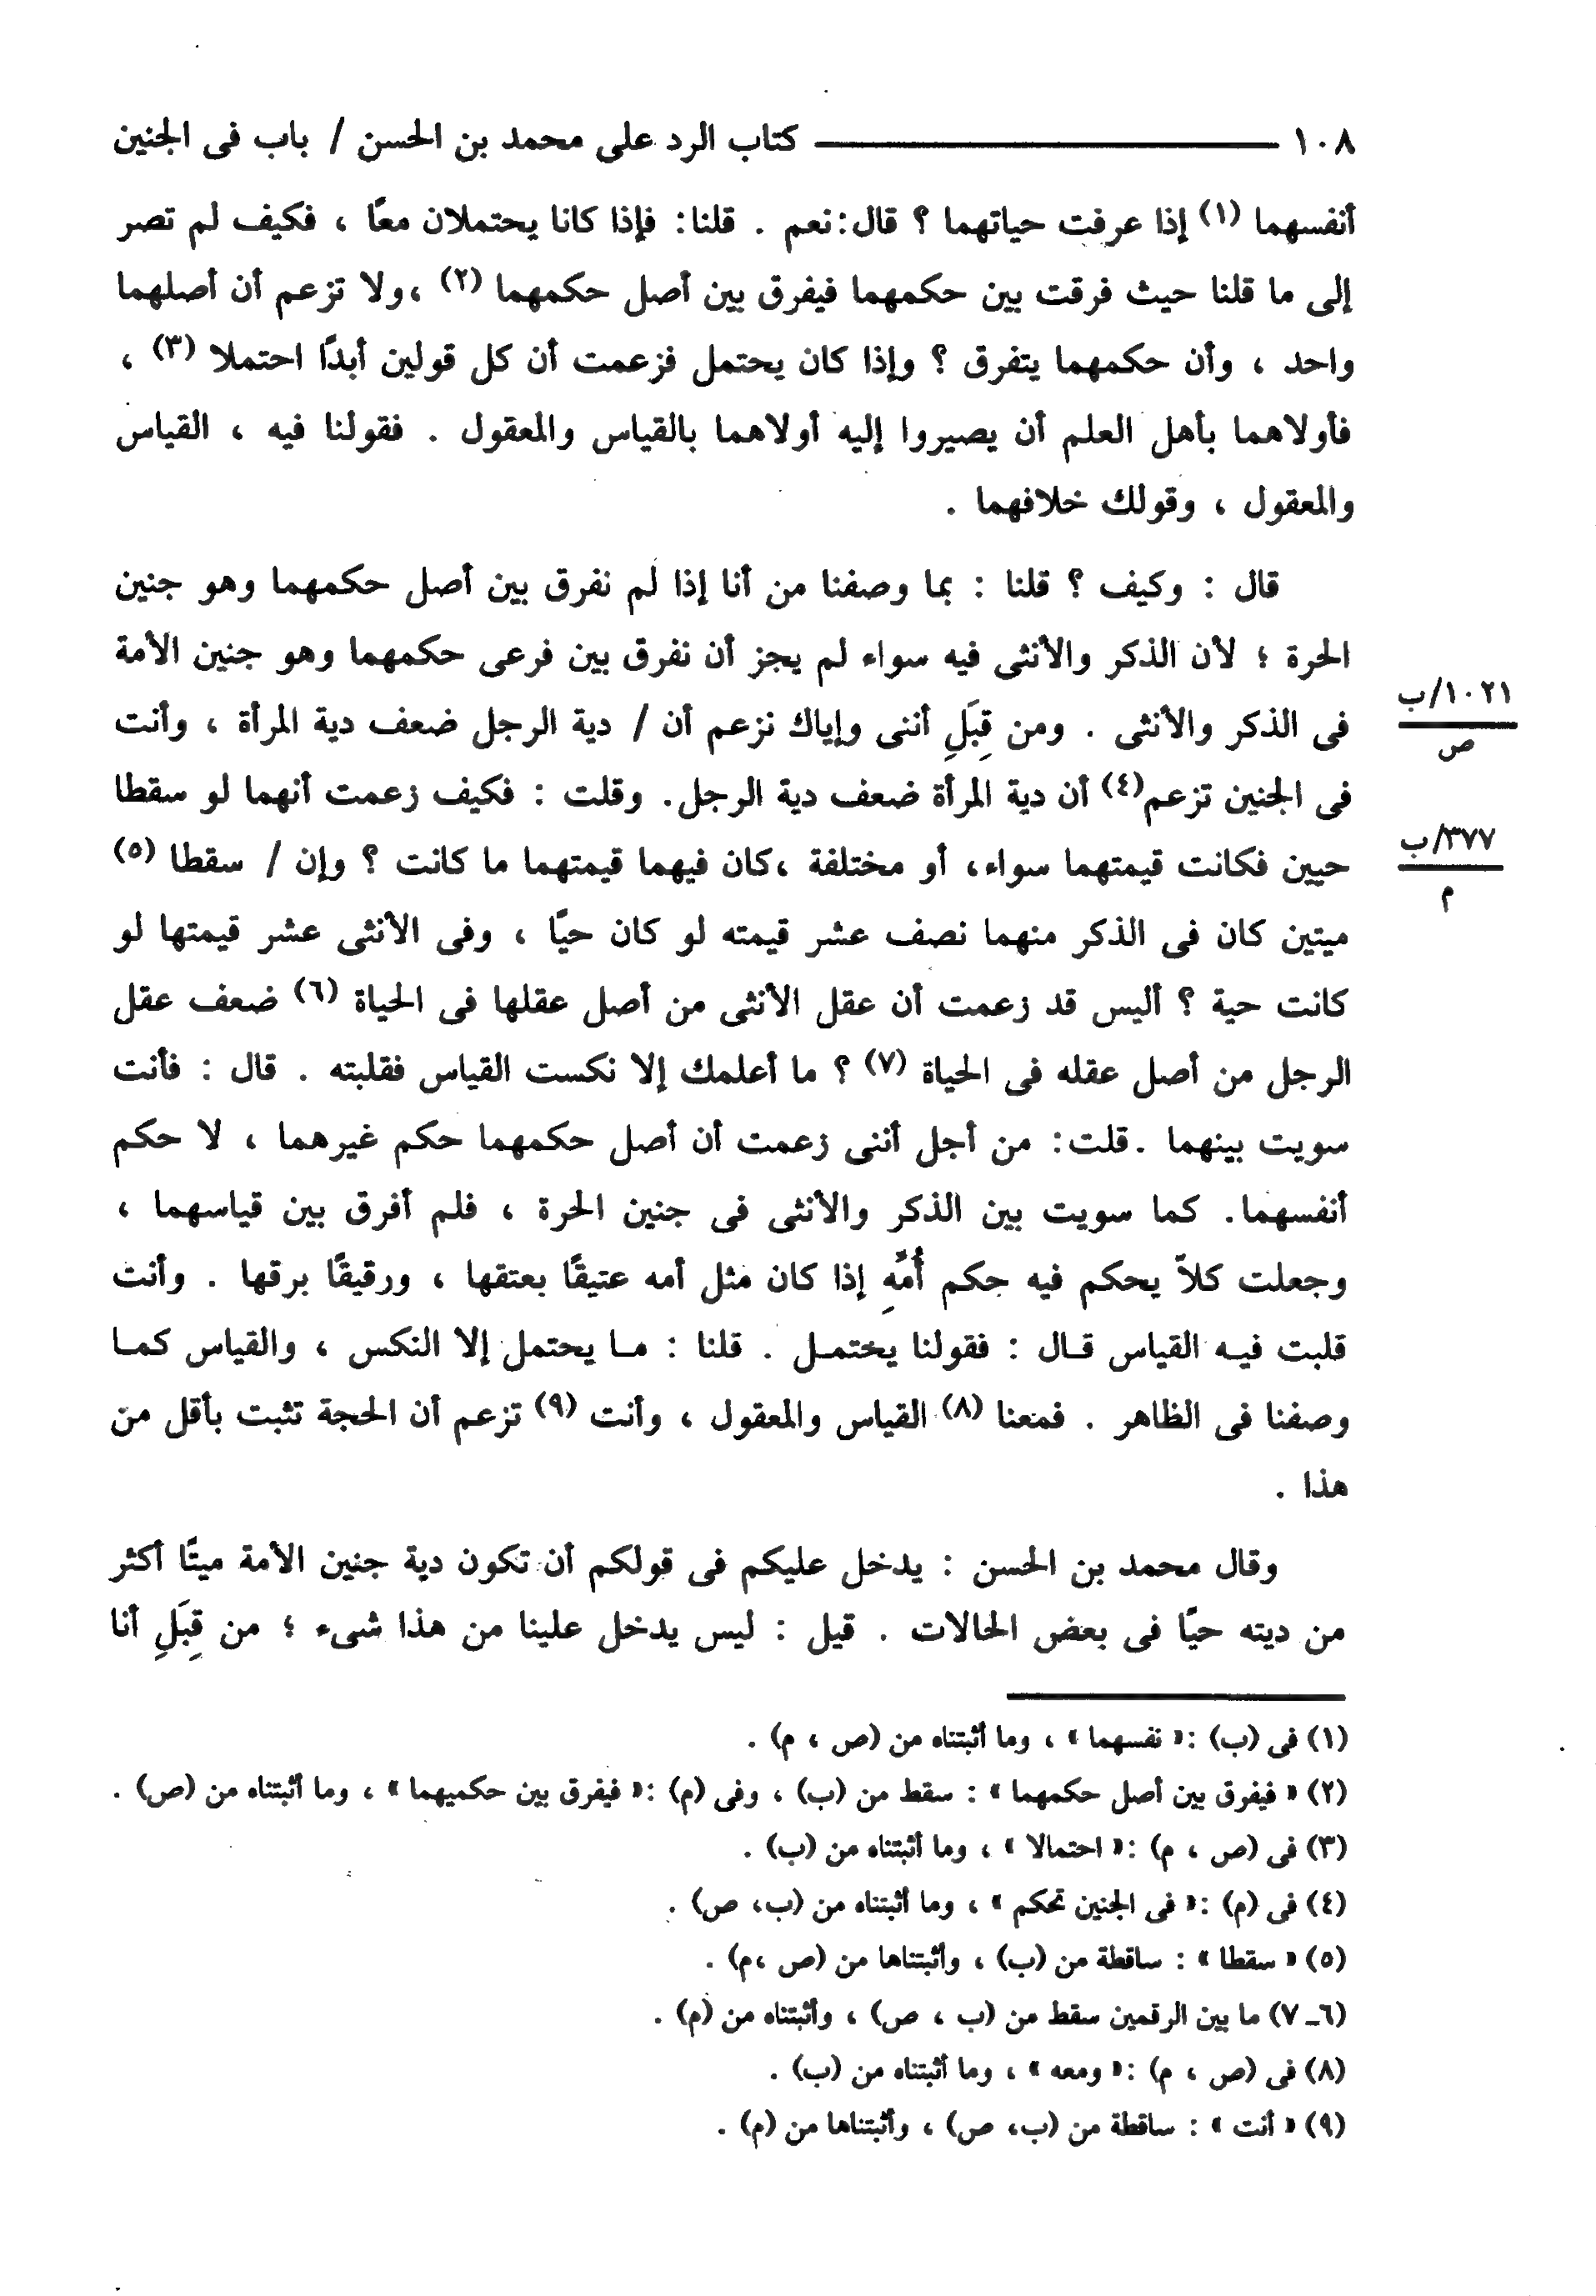 ١٠٨ ــــــــــــــــــــ كتاب الرد على محمد بن الحسن / باب فى الجنين
أنفسهما (١) إذا عرفت حياتهما ؟ قال :نعم . قلنا: فإذا كانا يحتملان معًا ، فكيف لم تصر
إلى ما قلنا حيث فرقت بين حكمهما فيفرق بين أصل حكمهما (٢) ،ولا تزعم أن أصلهما
واحد ، وأن حكمهما يتفرق ؟ وإذا كان يحتمل فزعمت أن كل قولين أبدًا احتملا (٣) ،
فأولاهما بأهل العلم أن يصيروا إليه أولاهما بالقياس والمعقول . فقولنا فيه ، القياس
والمعقول ، وقولك خلافهما .
قال : وكيف ؟ قلنا : بما وصفنا من أنا إذا لم نفرق بين أصل حكمهما وهو جنين
الحرة ؛ لأن الذكر والأنثى فيه سواء لم يجز أن نفرق بين فرعى حكمهما وهو جنين الأمة
فى الذكر والأنثى . ومن قِبَلِ أننى وإياك نزعم أن / دية الرجل ضعف دية المرأة ، وأنت
١٠٢١/ب
ص
فى الجنين تزعم(٤) أن دية المرأة ضعف دية الرجل. وقلت : فكيف زعمت أنهما لو سقطا
حيين فكانت قيمتهما سواء، أو مختلفة ،كان فيهما قيمتهما ما كانت ؟ وإن / سقطا (٥)
٣٧٧/ب
م
ميتين كان فى الذكر منهما نصف عشر قيمته لو كان حيًا ، وفى الأنثى عشر قيمتها لو
كانت حية ؟ أليس قد زعمت أن عقل الأنثى من أصل عقلها فى الحياة (٦) ضعف عقل
الرجل من أصل عقله فى الحياة (٧) ؟ ما أعلمك إلا نكست القياس فقلبته . قال : فأنت
سويت بينهما .قلت: من أجل أننى زعمت أن أصل حكمهما حكم غيرهما ، لا حكم
أنفسهما. كما سويت بين الذكر والأنثى فى جنين الحرة ، فلم أفرق بين قياسهما ،
وجعلت كلاً يحكم فيه حكم أُمِّهِ إذا كان مثل أمه عتيقًا بعتقها ، ورقيقًا برقها . وأنت
قلبت فيـه القياس قـال : فقولنا يحتمـل . قلنا : مـا يحتمل إلا النكس ، والقياس كمـا
وصفنا فى الظاهر . فمعنا (٨) القياس والمعقول ، وأنت (٩) تزعم أن الحجة تثبت بأقل من
هذا .
وقال محمد بن الحسن : يدخل عليكم فى قولكم أن تكون دية جنين الأمة ميتًا أكثر
من ديته حيًا فى بعض الحالات . قيل : ليس يدخل علينا من هذا شىء ؛ من قِبَلِ أنا
(١) فى (ب) :« نفسهما » ، وما أثبتناه من (ص ، م) .
(٢) « فيفرق بين أصل حكمهما » : سقط من (ب) ، وفى (م) :« فيفرق بين حكميهما » ، وما أثبتناه من (ص) .
(٣) فى (ص ، م) :« احتمالا » ، وما أثبتناه من (ب) .
(٤) فى (م) :« فى الجنين تحكم » ، وما أثبتناه من (ب، ص) .
(٥) « سقطا » : ساقطة من (ب) ، وأثبتناها من (ص ،م) .
(٦ـ ٧) ما بين الرقمين سقط من (ب ، ص) ، وأثبتناه من (م) .
(٨) فى (ص ، م) :« ومعه » ، وما أثبتناه من (ب) .
(٩) « أنت » : ساقطة من (ب، ص) ، وأثبتناها من (م) .